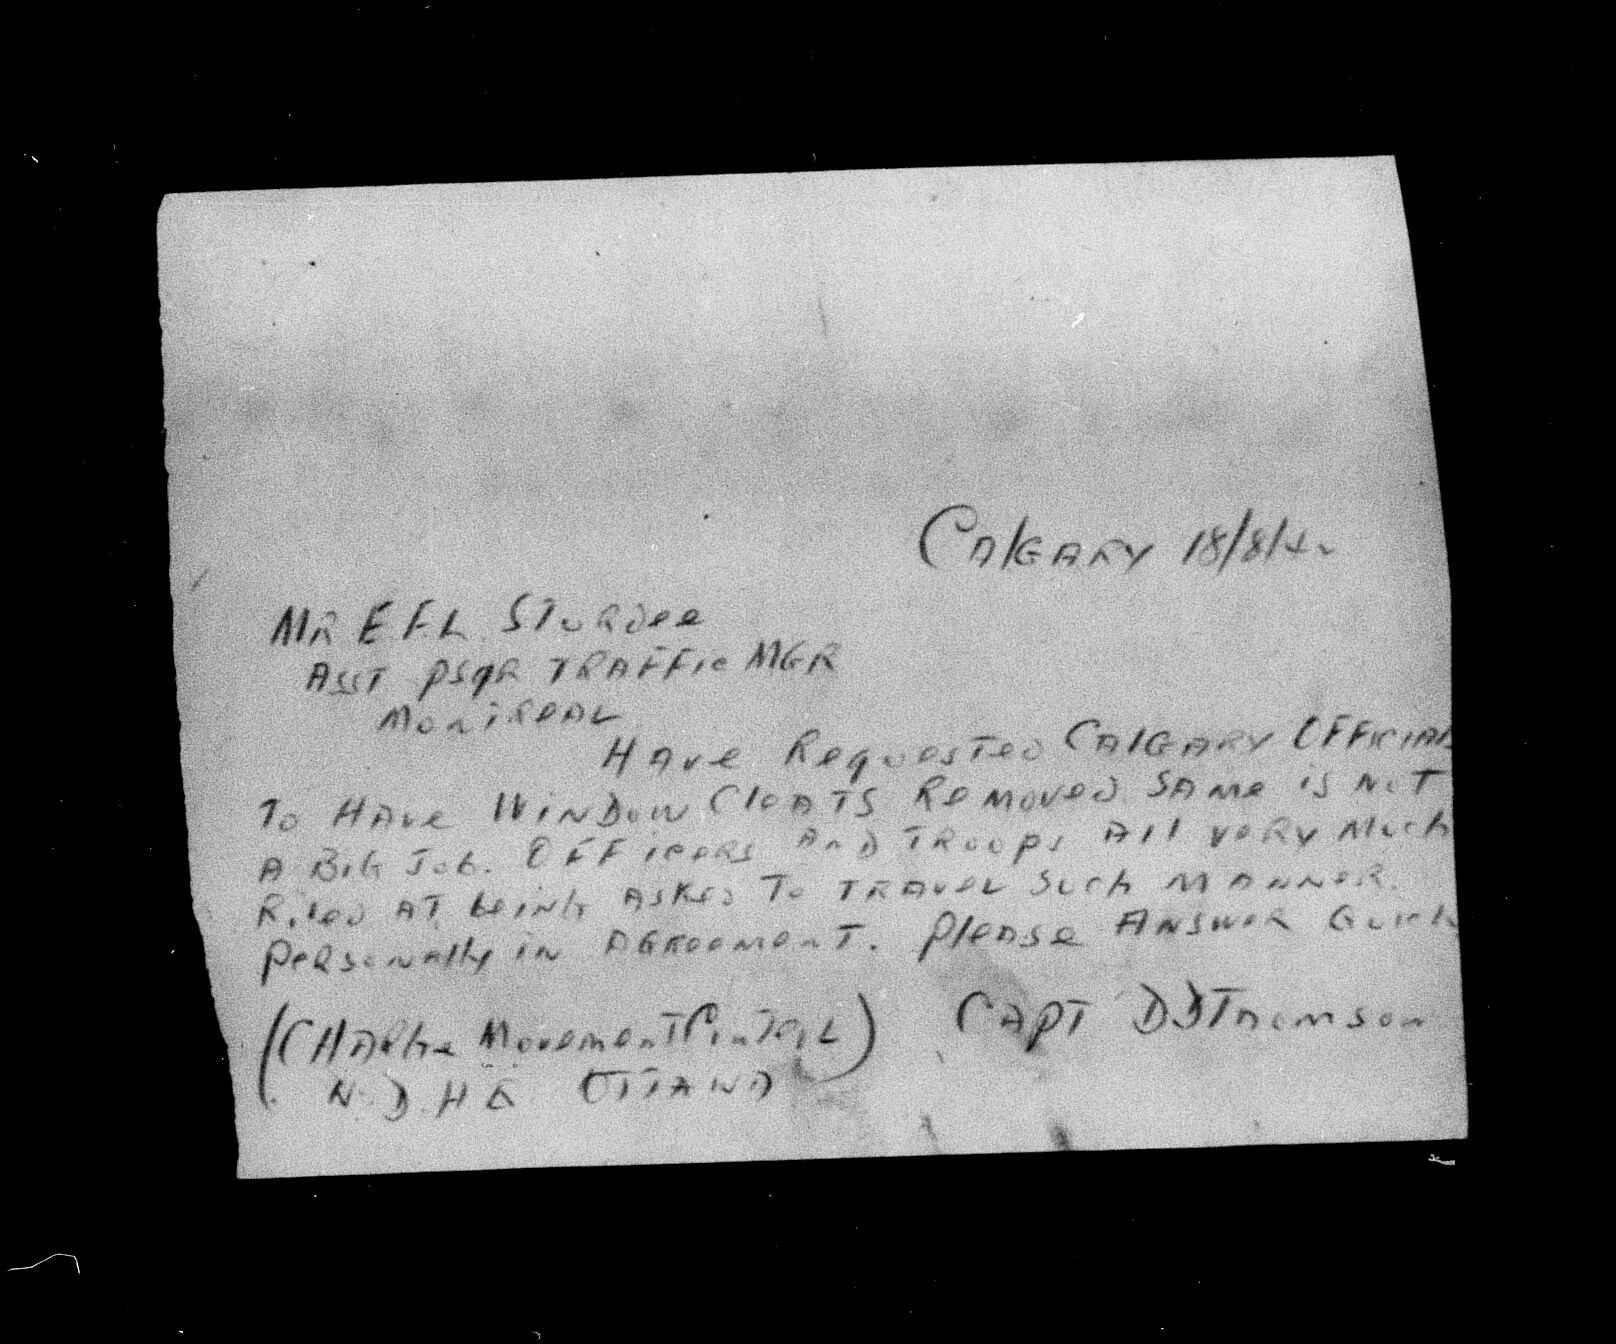 Calgary 18/8/4
Mr E F.L. Sturdee
Asst Psgr Traffic MGR
Montreal
Have Requested Calgary Official
To Have Window Cleats Removed. Same is not
A Big Job. Officers And Troops All very Much
Riled AT being Asked To Travel Such Manner.
Personally in Agreement. Please Answer Quick
(Charge Movement Control) Capt D J Thomson
N.D.H.Q. Ottawa